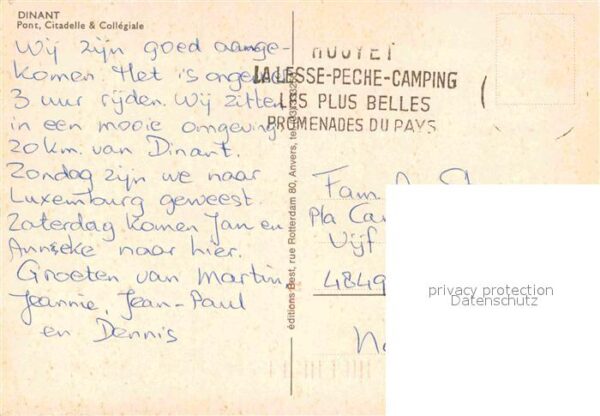 DINANT
Pont, Citadelle & Collégiale
Wij zijn goed aange-
komen. Het is ongeveer
3 uur rijden. Wij zitten
in een mooie omgeving
20 km. van Dinant.
Zondag zijn we naar
Luxemburg geweest.
Zaterdag komen Jan en
Anneke naar hier.
Groeten van Martin
Jeannie, Jean-Paul
en Dennis
éditions Best, rue Rotterdam 80, Anvers, tel.
HOUYET
LA LESSE-PECHE-CAMPING
LES PLUS BELLES
PROMENADES DU PAYS
Fam.
Vijf
4849
privacy protection
Datenschutz